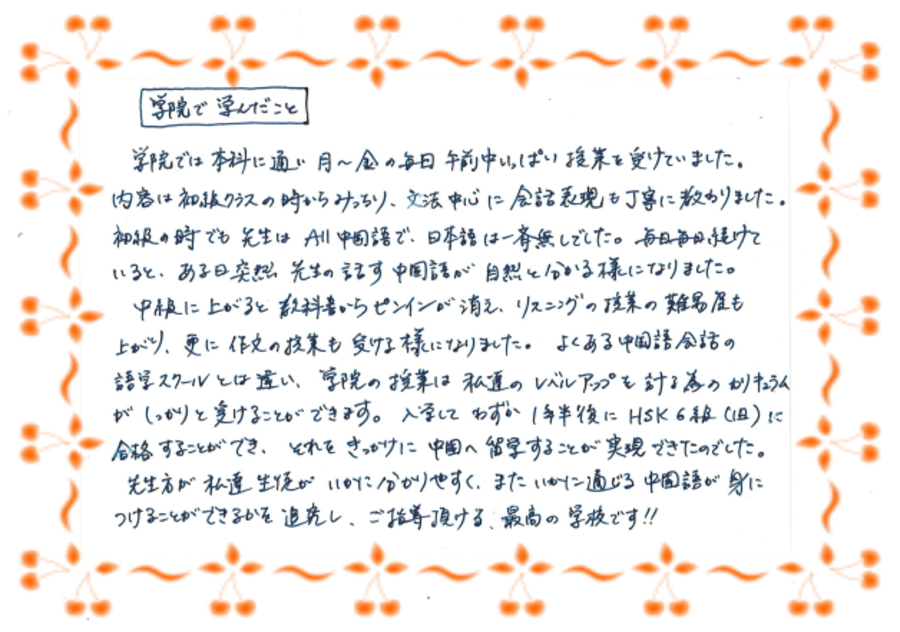 学院で学んだこと
学院では本科に通い月～金の毎日午前中いっぱい授業を受けていました。
内容は初級クラスの時からみっちり、文法中心に会話表現も丁寧に教わりました。
初級の時でも先生はAll中国語で、日本語は一斉無しでした。毎日毎日続けて
いると、ある日突然先生の話す中国語が自然と分かる様になりました。
中級に上がると教科書からピンインが消え、リスニングの授業の難易度も
上がり、更に作文の授業も受ける様になりました。よくある中国語会話の
語学スクールとは違い、学院の授業は私達のレベルアップを計る為のカリキュラム
がしっかりと受けることができます。入学してわずか1年半後にHSK6級(旧)に
合格することができ、それをきっかけに中国へ留学することが実現できたのでした。
先生方が私達生徒がいかに分かりやすく、またいかに通じる中国語が身に
つけることができるかを追究し、ご指導頂ける、最高の学校です!!